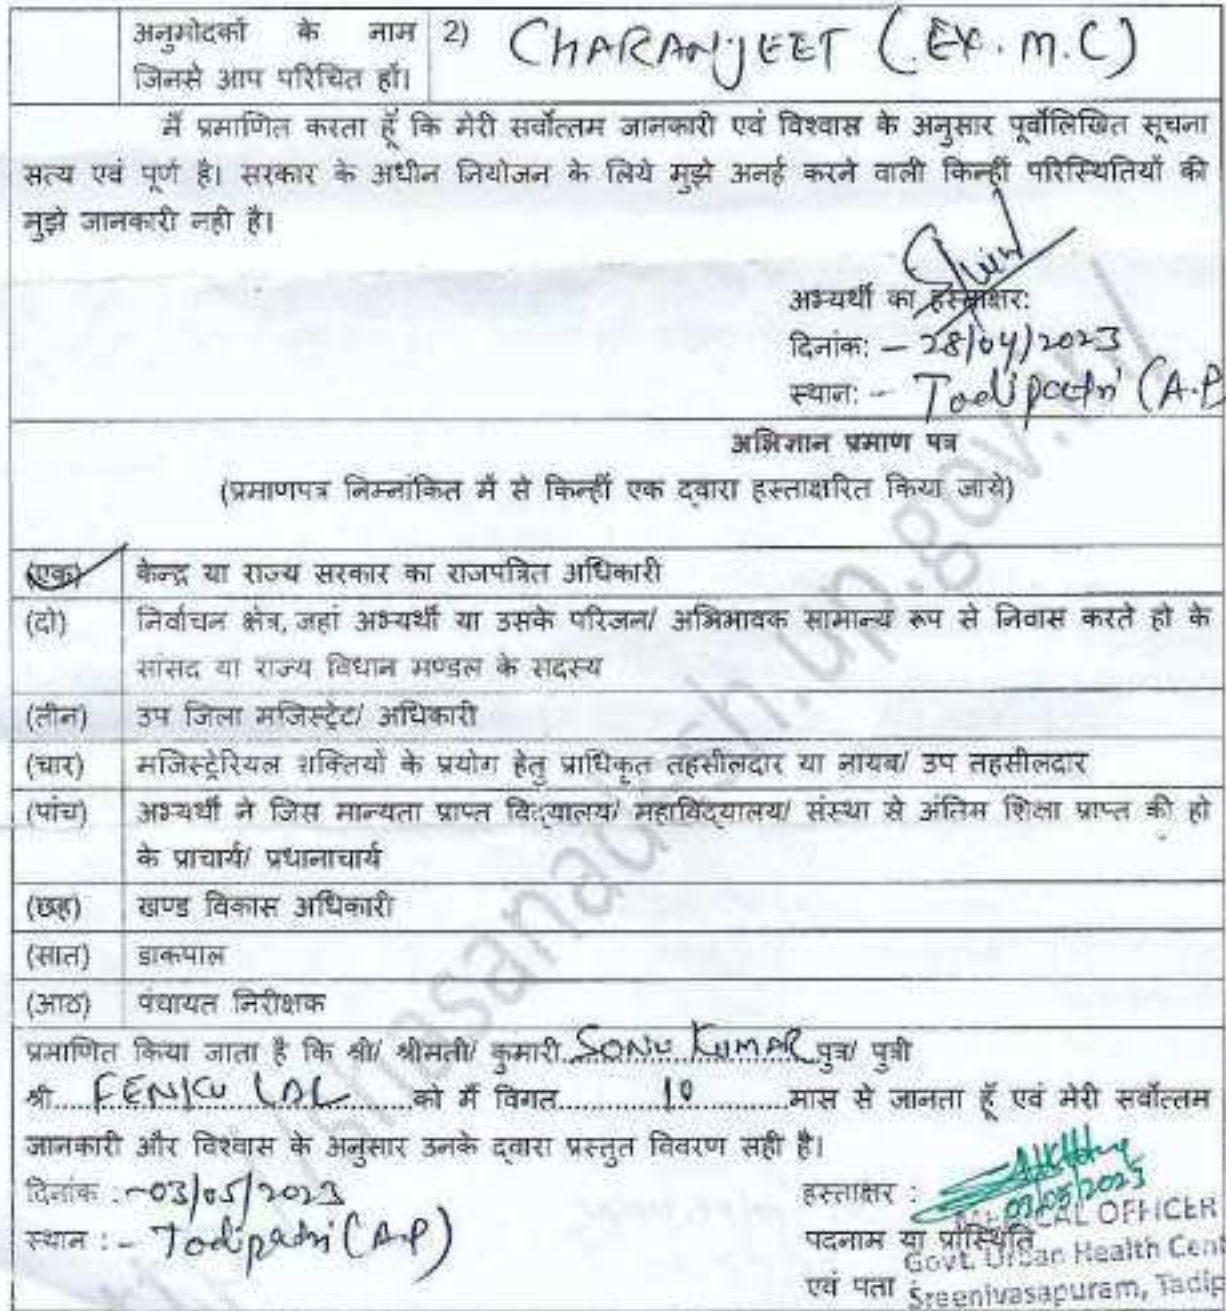 अनुमोदकों के नाम 2) CHARANJEET (.EX. M.C)
जिनसे आप परिचित हों।
मैं प्रमाणित करता हूँ कि मेरी सर्वोत्तम जानकारी एवं विश्वास के अनुसार पूर्वोलिखित सूचना
सत्य एवं पूर्ण है। सरकार के अधीन नियोजन के लिये मुझे अनर्ह करने वाली किन्हीं परिस्थितियों की
मुझे जानकारी नही है।
अभ्यर्थी का हस्ताक्षर:
दिनांक: - 28/04/2023
स्थान: - Tadipatri (A.P
अभिज्ञान प्रमाण पत्र
(प्रमाणपत्र निम्नांकित में से किन्हीं एक द्वारा हस्ताक्षरित किया जाये)
(एक) केन्द्र या राज्य सरकार का राजपत्रित अधिकारी
(दो) निर्वाचन क्षेत्र, जहां अभ्यर्थी या उसके परिजन/ अभिभावक सामान्य रूप से निवास करते हो के
सांसद या राज्य विधान मण्डल के सदस्य
(तीन) उप जिला मजिस्ट्रेट/ अधिकारी
(चार) मजिस्ट्रेरियल शक्तियों के प्रयोग हेतु प्राधिकृत तहसीलदार या नायब/ उप तहसीलदार
(पांच) अभ्यर्थी ने जिस मान्यता प्राप्त विद्यालय/ महाविद्यालय/ संस्था से अंतिम शिक्षा प्राप्त की हो
के प्राचार्य/ प्रधानाचार्य
(छह) खण्ड विकास अधिकारी
(सात) डाकपाल
(आठ) पंचायत निरीक्षक
प्रमाणित किया जाता है कि श्री/ श्रीमती/ कुमारी SONU KUMAR पुत्र/ पुत्री
श्री FENKU LAL को मैं विगत 10 मास से जानता हूँ एवं मेरी सर्वोत्तम
जानकारी और विश्वास के अनुसार उनके द्वारा प्रस्तुत विवरण सही है।
दिनांक :- 03/05/2023
स्थान :- Tadipatri (A.P)
हस्ताक्षर :
03/05/2023
OFFICER
पदनाम या प्रास्थिति
Govt. Urban Health Cent
एवं पता Sreenivasapuram, Tadip
shasanadesh.up.gov.in/